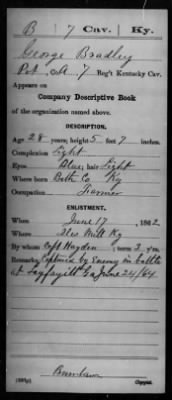 B | 7 Cav. | Ky.
George Bradley
Pvt, Co. A 7 Reg't Kentucky Cav.
Appears on
Company Descriptive Book
of the organization named above.
DESCRIPTION.
Age 28 years; height 5 feet 7 inches.
Complexion Light
Eyes Blue; hair Light
Where born Bath Co Ky
Occupation Farmer
ENLISTMENT.
When June 17, 1862.
Where Iles Mill Ky
By whom Capt Hayden; term 3 y'rs.
Remarks: Captured by Enemy in battle
at Lafayett Ga June 24/64
Copyist.